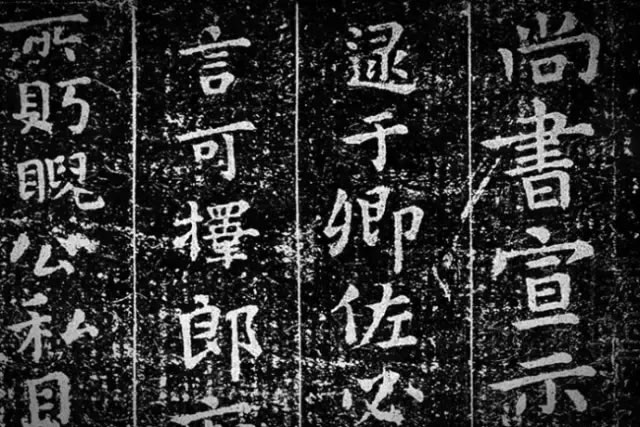 尚書宣示
逮于卿佐必
言可擇郎
所睨公私